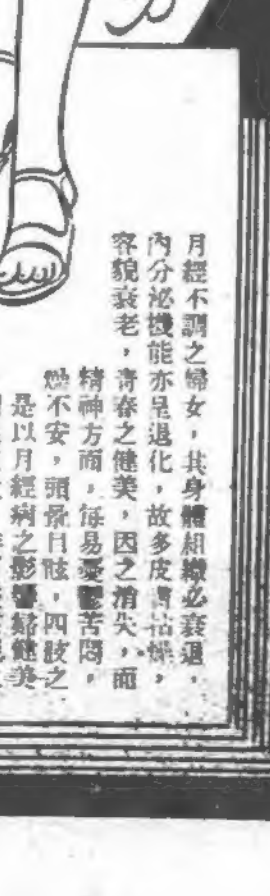 月經不調之婦女，其身體組織必衰退，
內分泌機能亦呈退化，故多皮膚枯燥，
容貌衰老，青春之健美，因之消失，而
精神方面，每易憂鬱苦悶，
不安，頭暈目眩，四肢之
是以月經病之影響婦健美